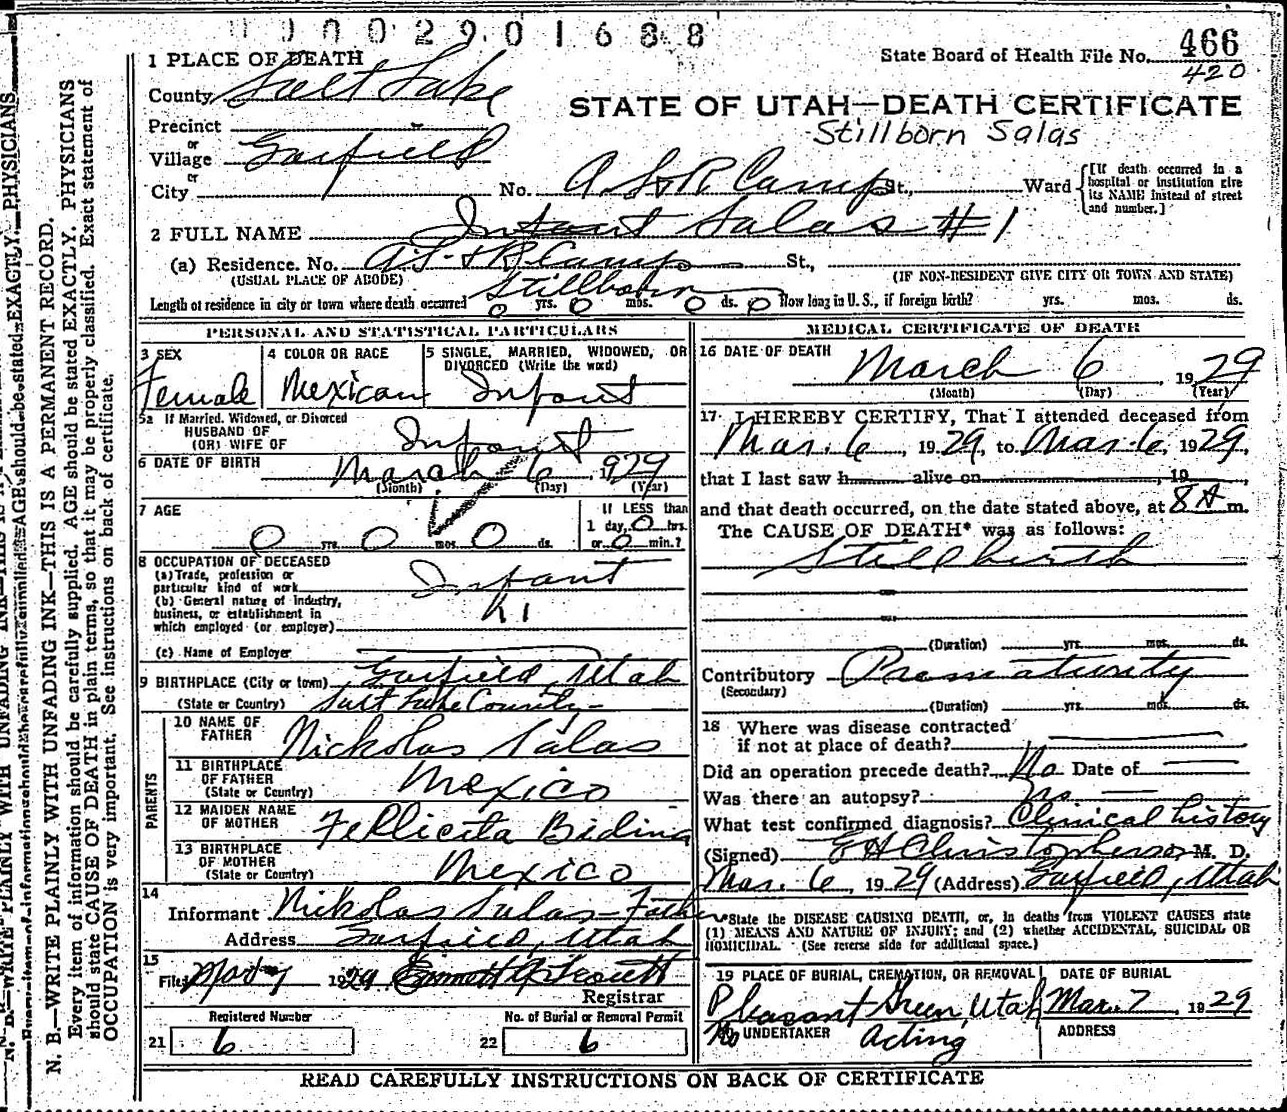 0002901688
State Board of Health File No. 466
420
1 PLACE OF DEATH
County Salt Lake
STATE OF UTAH—DEATH CERTIFICATE
Stillborn Salas
Precinct
or
Village Garfield
or
City No. A. S. & R. Camp St., Ward [If death occurred in a hospital or institution give its NAME instead of street and number.]
2 FULL NAME Infant Salas #1
(a) Residence. No. A. S. & R. Camp St.,
(USUAL PLACE OF ABODE) (IF NON-RESIDENT GIVE CITY OR TOWN AND STATE)
Stillborn
Length of residence in city or town where death occurred 0 yrs. 0 mos. 0 ds. 0 How long in U. S., if foreign birth? yrs. mos. ds.
PERSONAL AND STATISTICAL PARTICULARS
3 SEX Female
4 COLOR OR RACE Mexican
5 SINGLE, MARRIED, WIDOWED, OR DIVORCED (Write the word) Infant
5a If Married, Widowed, or Divorced
HUSBAND OF
(OR) WIFE OF Infant
6 DATE OF BIRTH March 6 1929
(Month) (Day) (Year)
7 AGE 0 yrs. 0 mos. 0 ds.
If LESS than
1 day, 0 hrs.
or 0 min.?
8 OCCUPATION OF DECEASED
(a) Trade, profession or
particular kind of work Infant
(b) General nature of industry,
business, or establishment in
which employed (or employer)
(c) Name of Employer
9 BIRTHPLACE (City or town) Garfield, Utah
(State or Country) Salt Lake County
PARENTS
10 NAME OF
FATHER Nickolas Salas
11 BIRTHPLACE
OF FATHER
(State or Country) Mexico
12 MAIDEN NAME
OF MOTHER Fellicita Bidina
13 BIRTHPLACE
OF MOTHER
(State or Country) Mexico
14
Informant Nickolas Salas - Father
Address Garfield, Utah
15
Filed 1929
Registrar
Registered Number No. of Burial or Removal Permit
21 6 22 6
MEDICAL CERTIFICATE OF DEATH
16 DATE OF DEATH
March 6, 1929
(Month) (Day) (Year)
17 I HEREBY CERTIFY, That I attended deceased from
Mar. 6, 1929, to Mar. 6, 1929,
that I last saw h alive on , 19
and that death occurred, on the date stated above, at 8 A m.
The CAUSE OF DEATH* was as follows:
Stillbirth
(Duration) yrs. mos. ds.
Contributory Prematurity
(Secondary)
(Duration) yrs. mos. ds.
18 Where was disease contracted
if not at place of death?
Did an operation precede death? No Date of
Was there an autopsy? No
What test confirmed diagnosis? Clinical history
(Signed) E H Christopherson M. D.
Mar. 6, 1929 (Address) Garfield, Utah
*State the DISEASE CAUSING DEATH, or, in deaths from VIOLENT CAUSES state
(1) MEANS AND NATURE OF INJURY; and (2) whether ACCIDENTAL, SUICIDAL OR
HOMICIDAL. (See reverse side for additional space.)
19 PLACE OF BURIAL, CREMATION, OR REMOVAL DATE OF BURIAL
Pleasant Green, Utah Mar. 7 1929
UNDERTAKER ADDRESS
No Acting
READ CAREFULLY INSTRUCTIONS ON BACK OF CERTIFICATE
N. B.—WRITE PLAINLY WITH UNFADING INK—THIS IS A PERMANENT RECORD.
Every item of information should be carefully supplied. AGE should be stated EXACTLY. PHYSICIANS
should state CAUSE OF DEATH in plain terms, so that it may be properly classified. Exact statement of
OCCUPATION is very important. See instructions on back of certificate.